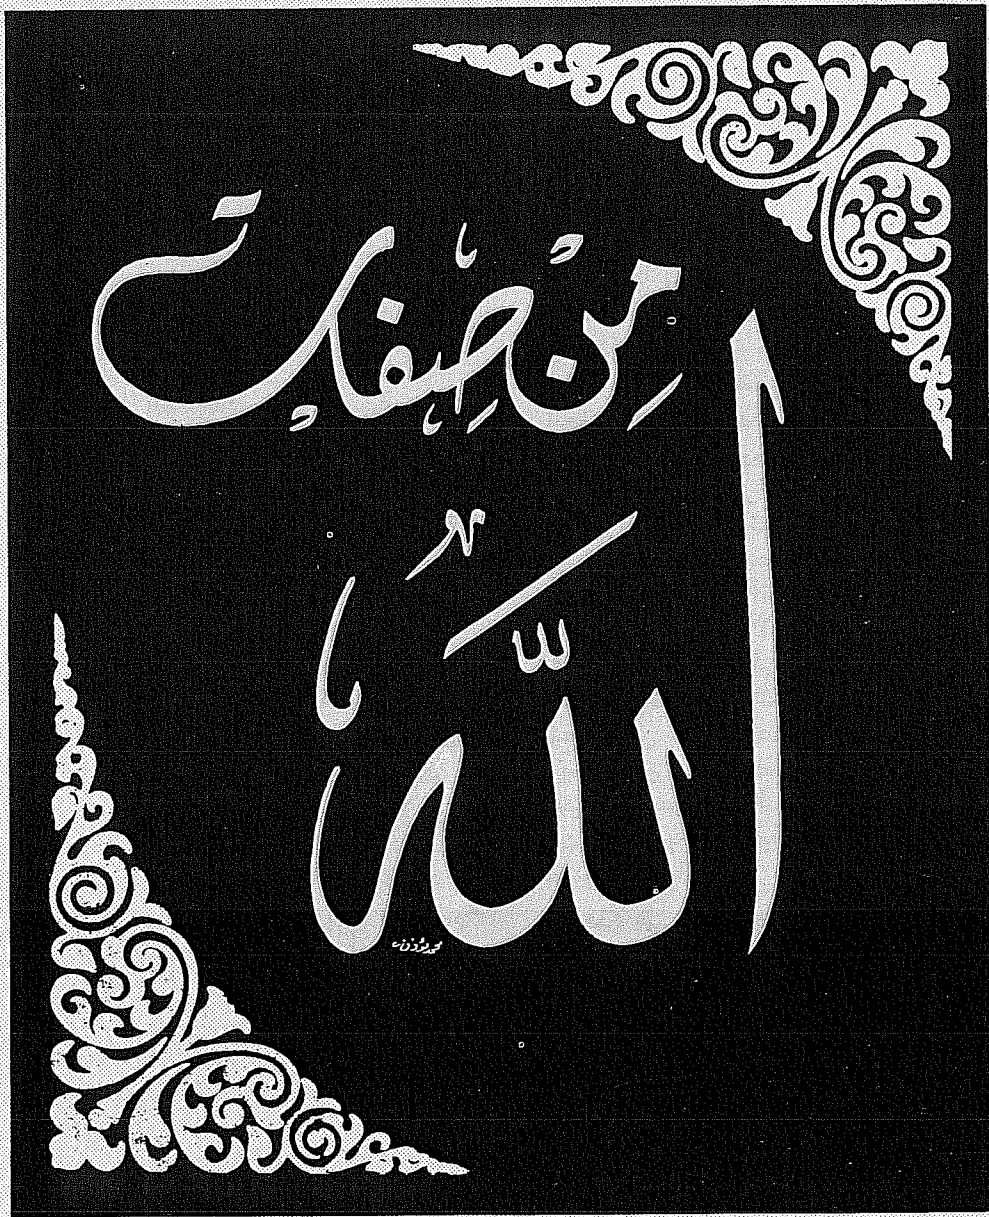 مِنْ صِفَاتِ
اللَّه